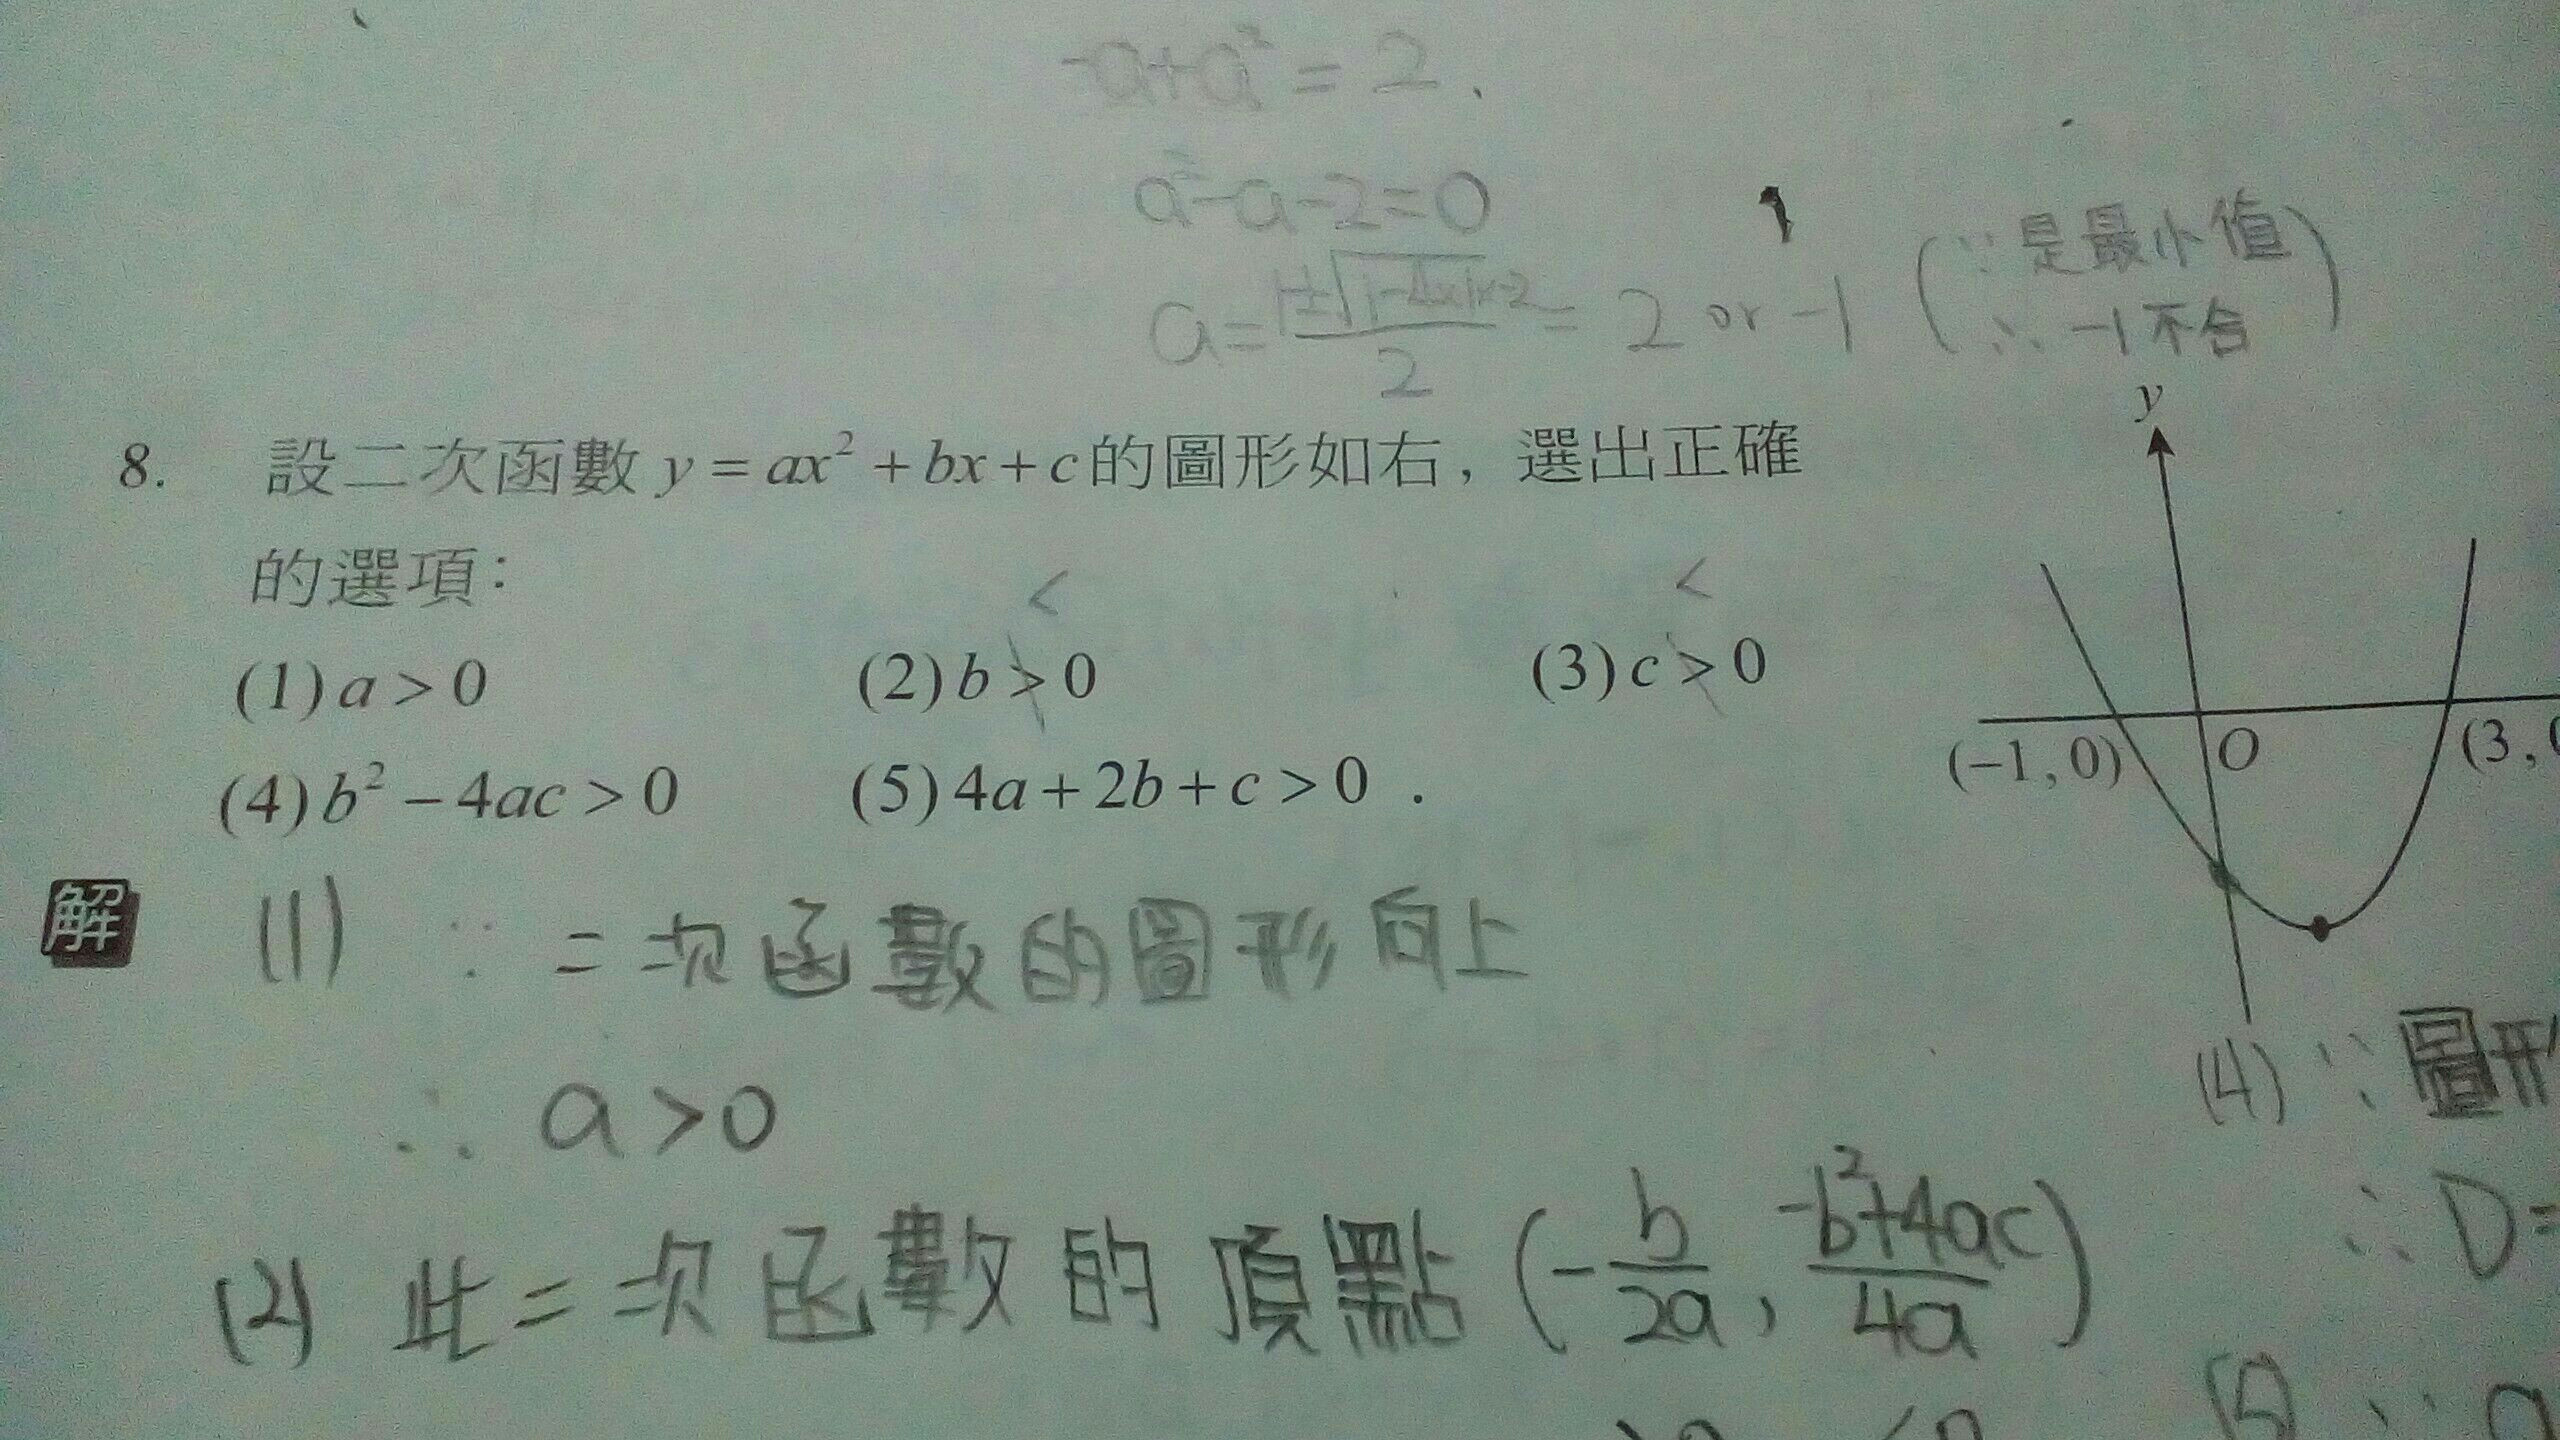 -a+a²=2.
a²-a-2=0
a=\frac{1±\sqrt{1-4×1×-2}}{2}=2 or -1 (∵是最小值
∴-1不合)
8. 設二次函數 y = ax² + bx + c 的圖形如右，選出正確
的選項：
< <
(1) a > 0 (2) b > 0 (3) c > 0
(4) b² − 4ac > 0 (5) 4a + 2b + c > 0 .
y
(−1, 0) O (3,
解 (1) ∵二次函數的圖形向上
∴ a>0
(2) 此二次函數的頂點(-\frac{b}{2a}, \frac{-b²+4ac}{4a})
(4) ∵圖形
∴ D=
(5) ∵